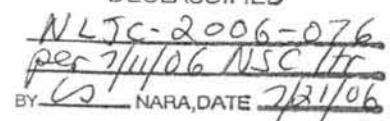 DECLASSIFIED
NLJC-2006-076
per 7/11/06 NSC ltr
BY NARA, DATE 7/21/06